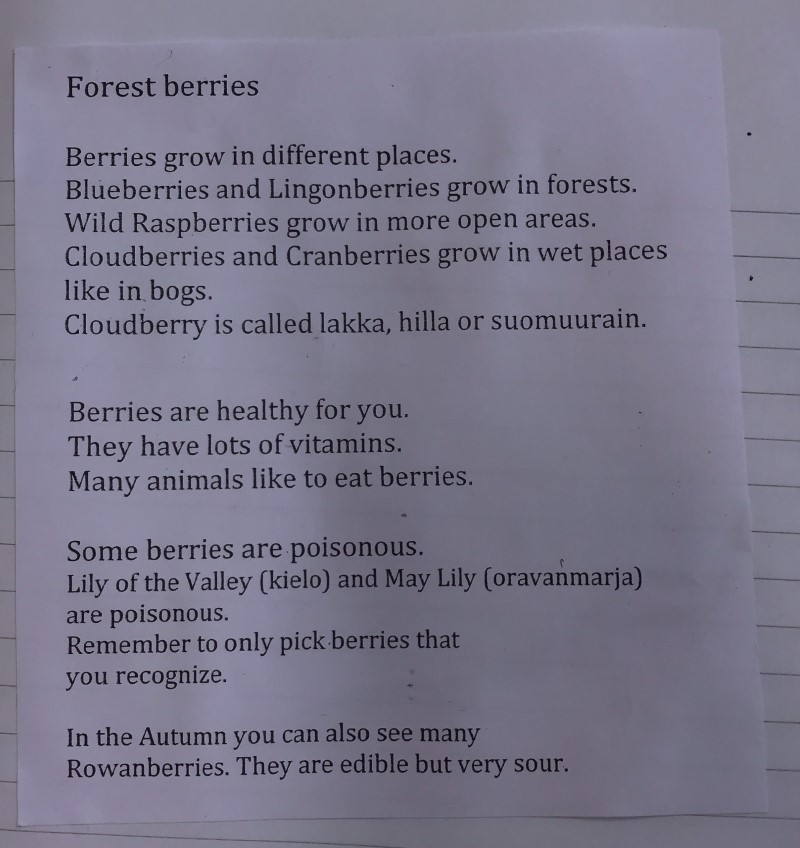 Forest berries
Berries grow in different places.
Blueberries and Lingonberries grow in forests.
Wild Raspberries grow in more open areas.
Cloudberries and Cranberries grow in wet places
like in bogs.
Cloudberry is called lakka, hilla or suomuurain.
Berries are healthy for you.
They have lots of vitamins.
Many animals like to eat berries.
Some berries are poisonous.
Lily of the Valley (kielo) and May Lily (oravanmarja)
are poisonous.
Remember to only pick berries that
you recognize.
In the Autumn you can also see many
Rowanberries. They are edible but very sour.